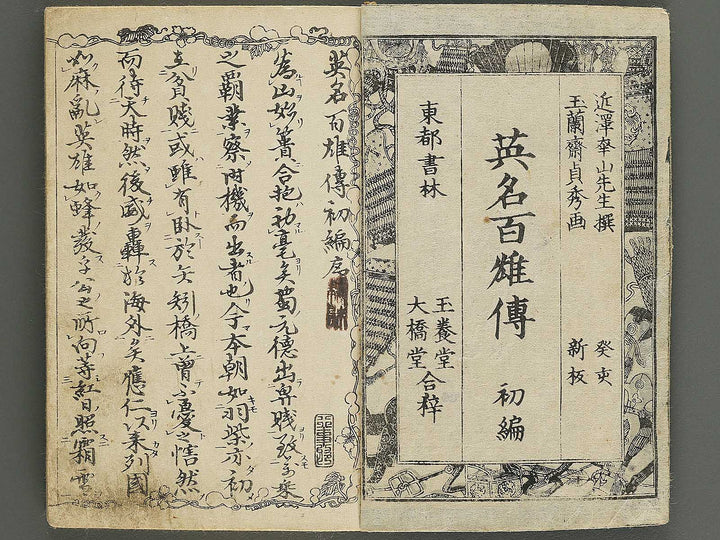 近澤幸山先生撰
玉蘭齋貞秀画
癸亥
新板
英名百雄傳
初編
東都書林
玉養堂
大橋堂
合梓
英名百雄傳初編序
為山始簣合抱初毫矣蜀元德出卑賤致
之覇業察時機而出者也今本朝如羽柴亦初
貧賤或雖有臥於矢矧橋上曽不憂之
而待天時然後威轟於海外矣應仁以来列國
如麻亂英雄如蜂發子公之所向等紅日照霜雪